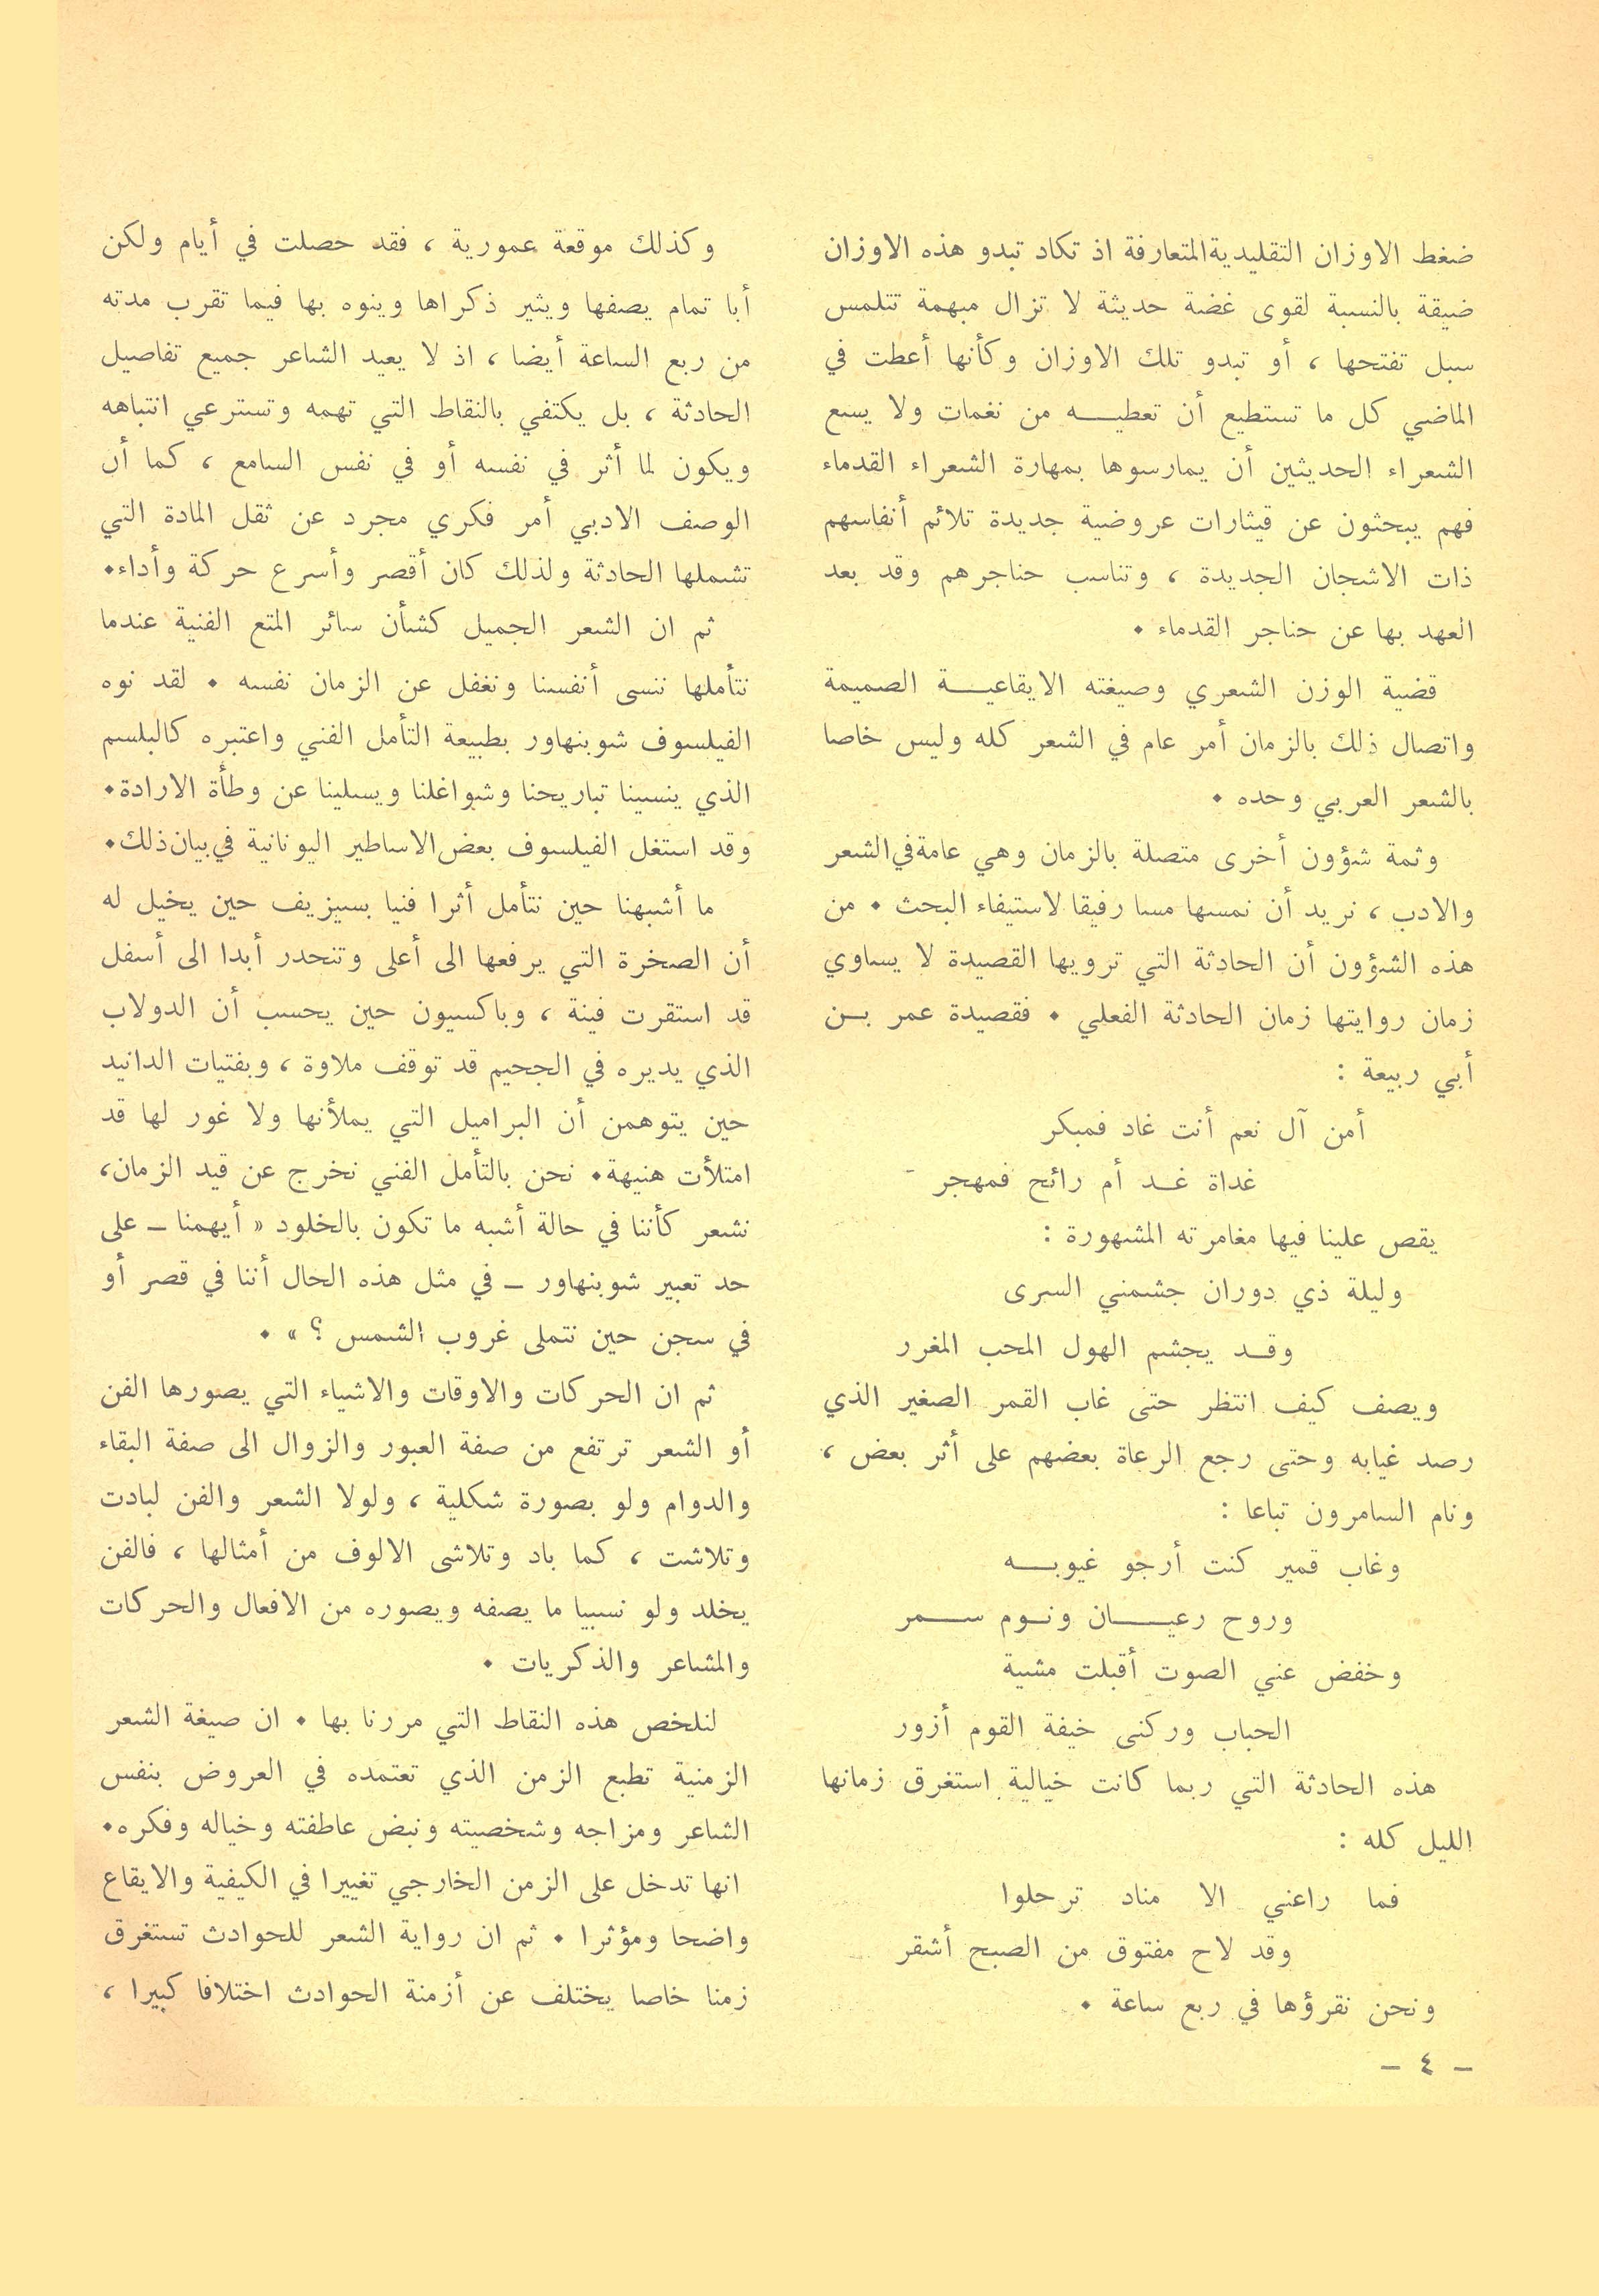 ضغط الاوزان التقليدية المتعارفة اذ تكاد تبدو هذه الاوزان
ضيقة بالنسبة لقوى غضة حديثة لا تزال مبهمة تتلمس
سبل تفتحها ، أو تبدو تلك الاوزان وكأنها أعطت في
الماضي كل ما تستطيع أن تعطيه من نغمات ولا يسع
الشعراء الحديثين أن يمارسوها بمهارة الشعراء القدماء
فهم يبحثون عن قيثارات عروضية جديدة تلائم أنفاسهم
ذات الاشجان الجديدة ، وتناسب حناجرهم وقد بعد
العهد بها عن حناجر القدماء .
قضية الوزن الشعري وصيغته الايقاعية الصميمة
واتصال ذلك بالزمان أمر عام في الشعر كله وليس خاصا
بالشعر العربي وحده .
وثمة شؤون أخرى متصلة بالزمان وهي عامة في الشعر
والادب ، نريد أن نمسها مسا رفيقا لاستيفاء البحث . من
هذه الشؤون أن الحادثة التي ترويها القصيدة لا يساوي
زمان روايتها زمان الحادثة الفعلي . فقصيدة عمر بن
أبي ربيعة :
أمن آل نعم أنت غاد فمبكر
غداة غد أم رائح فمهجر
يقص علينا فيها مغامرته المشهورة :
وليلة ذي دوران جشمني السرى
وقد يجشم الهول المحب المغرر
ويصف كيف انتظر حتى غاب القمر الصغير الذي
رصد غيابه وحتى رجع الرعاة بعضهم على أثر بعض ،
ونام السامرون تباعا :
وغاب قمير كنت أرجو غيوبه
وروح رعيان ونوم سمر
وخفض عني الصوت أقبلت مشية
الحباب وركنى خيفة القوم أزور
هذه الحادثة التي ربما كانت خيالية استغرق زمانها
الليل كله :
فما راعني الا مناد ترحلوا
وقد لاح مفتوق من الصبح أشقر
ونحن نقرؤها في ربع ساعة .
وكذلك موقعة عمورية ، فقد حصلت في أيام ولكن
أبا تمام يصفها ويثير ذكراها وينوه بها فيما تقرب مدته
من ربع الساعة أيضا ، اذ لا يعيد الشاعر جميع تفاصيل
الحادثة ، بل يكتفي بالنقاط التي تهمه وتسترعي انتباهه
ويكون لها أثر في نفسه أو في نفس السامع ، كما أن
الوصف الادبي أمر فكري مجرد عن ثقل المادة التي
تشملها الحادثة ولذلك كان أقصر وأسرع حركة وأداء.
ثم ان الشعر الجميل كشأن سائر المتع الفنية عندما
نتأملها ننسى أنفسنا ونغفل عن الزمان نفسه . لقد نوه
الفيلسوف شوبنهاور بطبيعة التأمل الفني واعتبره كالبلسم
الذي ينسينا تباريحنا وشواغلنا ويسلينا عن وطأة الارادة.
وقد استغل الفيلسوف بعض الاساطير اليونانية في بيان ذلك.
ما أشبهنا حين نتأمل أثرا فنيا بسيزيف حين يخيل له
أن الصخرة التي يرفعها الى أعلى وتنحدر أبدا الى أسفل
قد استقرت فينة ، وباكسيون حين يحسب أن الدولاب
الذي يديره في الجحيم قد توقف ملاوة ، وبفتيات الدانيد
حين يتوهمن أن البراميل التي يملأنها ولا غور لها قد
امتلأت هنيهة. نحن بالتأمل الفني نخرج عن قيد الزمان،
نشعر كأننا في حالة أشبه ما تكون بالخلود « أيهمنا – على
حد تعبير شوبنهاور – في مثل هذه الحال أننا في قصر أو
في سجن حين نتملى غروب الشمس ؟ » .
ثم ان الحركات والاوقات والاشياء التي يصورها الفن
أو الشعر ترتفع من صفة العبور والزوال الى صفة البقاء
والدوام ولو بصورة شكلية ، ولولا الشعر والفن لبادت
وتلاشت ، كما باد وتلاشى الالوف من أمثالها ، فالفن
يخلد ولو نسبيا ما يصفه ويصوره من الافعال والحركات
والمشاعر والذكريات .
لنلخص هذه النقاط التي مررنا بها . ان صيغة الشعر
الزمنية تطبع الزمن الذي تعتمده في العروض بنفس
الشاعر ومزاجه وشخصيته ونبض عاطفته وخياله وفكره.
انها تدخل على الزمن الخارجي تغييرا في الكيفية والايقاع
واضحا ومؤثرا . ثم ان رواية الشعر للحوادث تستغرق
زمنا خاصا يختلف عن أزمنة الحوادث اختلافا كبيرا ،
– ٤ –